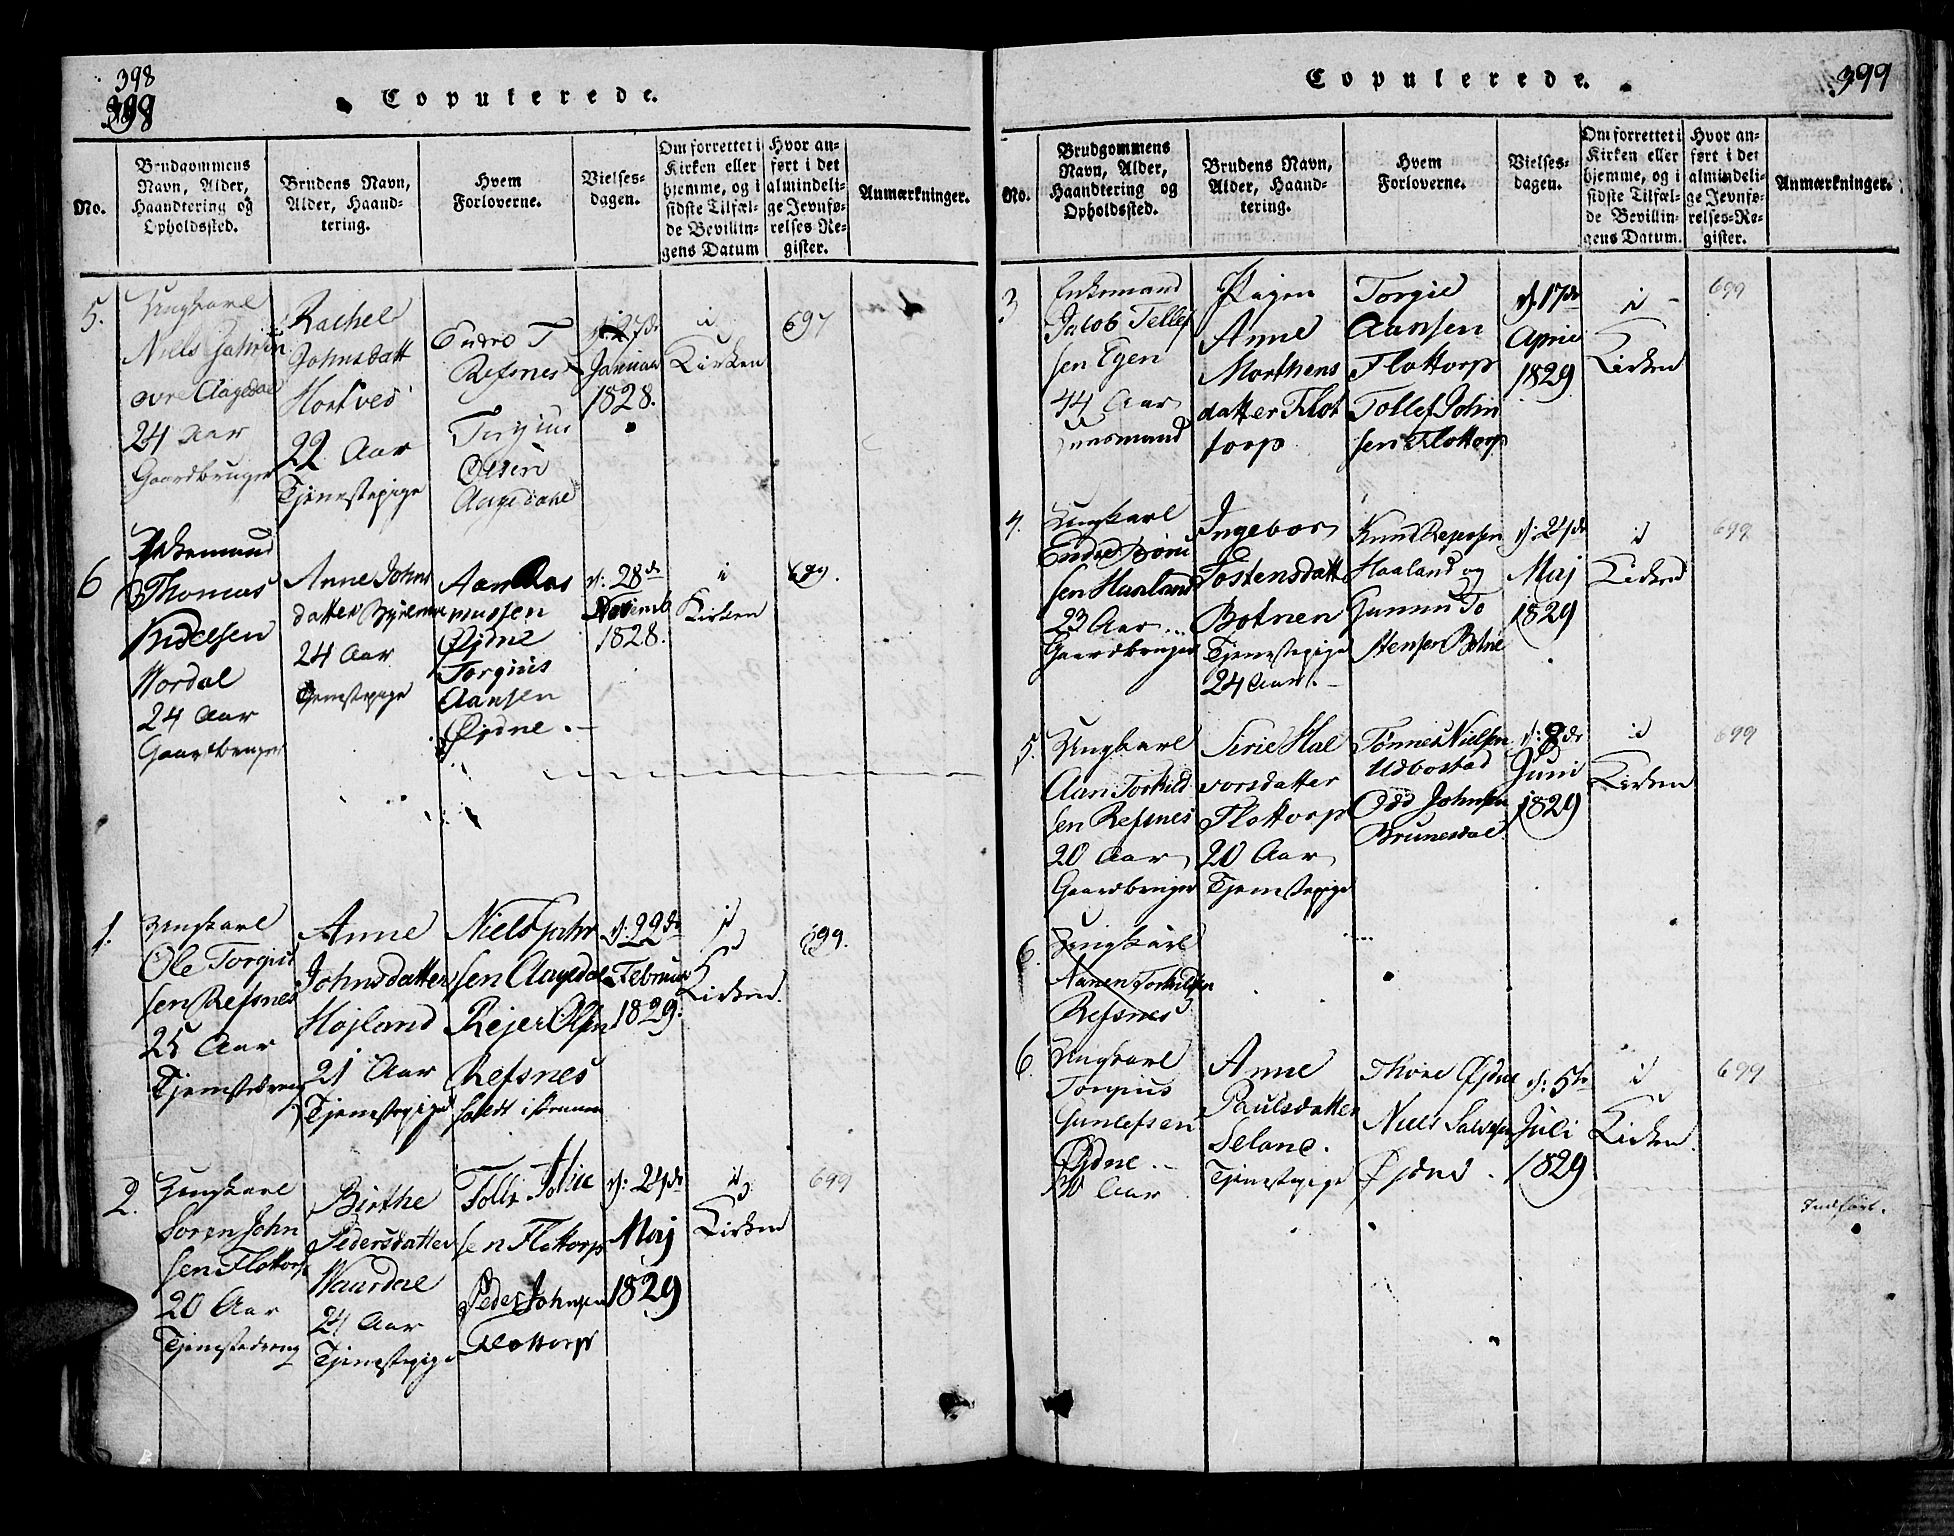 398
398
Copulerede.
No.
Brudgommens
Navn, Alder,
Haandtering og
Opholdssted.
Brudens Navn,
Alder, Haand-
tering.
Hvem
Forloverne.
Vielses-
dagen.
Om forrettet i
Kirken eller
hjemme, og i
sidste Tilfæl-
de Bevillin-
gens Datum
Hvor an-
ført i det
almindeli-
ge Jevnfø-
relses-Re-
gister.
Anmærkninger.
5.
Ungkarl
Niels
øvre Aagedal
24 Aar
Gaardbruger
Rachel
Johnsdatt
Hortved
22 Aar
Tjenestepige
Endre T
Refsnes
Torgius
Olsen
Aagedahl
d: 27de
Januar
1828.
i
Kirken
697
6
Enkemand
Thomas
Nielsen
Wordal
24 Aar
Gaardbruger
Anne Johns
datter
24 Aar
Tjenestepige
Aan Ras
mussen
Øidne
Torgius
Aansen
Øydne.
d: 28de
Novemb
1828.
i
Kirken
699.
1.
Ungkarl
Ole Torgius
sen Refsnes
25 Aar
Tjenestedreng
Anne
Johnsdatter
Højland
21 Aar
Tjenestepige
Niels Jahn
sen Aagedal
Rejer Olsen
Refsnes
d: 22de
Februar
1829.
i
Kirken.
699.
2.
Ungkarl
Soren John
sen Flottorp
20 Aar
Tjenestedreng
Birthe
Pedersdatter
Waardal
24 Aar
Tjenestepige
Tolle
sen Flottorp
Peder Johnsen
Flottorp
d: 24de
Maj
1829
i
Kirken
699
399
Copulerede.
No.
Brudgommens
Navn, Alder,
Haandtering og
Opholdssted.
Brudens Navn,
Alder, Haand-
tering.
Hvem
Forloverne.
Vielses-
dagen.
Om forrettet i
Kirken eller
hjemme, og i
sidste Tilfæl-
de Bevillin-
gens Datum.
Hvor an-
ført i det
almindeli-
ge Jevnfø-
relses-Re-
gister.
Anmærkninger.
3
Enkemand
Jacob Tellef
sen Egen
44 Aar
Pigen
Anne
Morthens
datter Flot
torp
Torgie
Aansen
Flottorp
Tollef John
sen Flottorp
d. 17de
April
1829
i
Kirken
699
4.
Ungkarl
Endre Børe
sen Haaland
23 Aar
Gaardbruger
Ingebor
Tostensdatt
Botnen
Tjenestepige
24 Aar.
Knud Rejersen
Haaland og
Gunun To
stensen Botne
d: 24de
Maj
1829
i
Kirken
699
5.
Ungkarl
Aan Torkild
sen Refsnes
20 Aar
Gaardbruger
Serie Hal
vorsdatter
Flottorp
20 Aar
Tjenestepige
Tønnes Nielsen
Udbostad
Odd Johnsen
Brunesdal
d: 8de
Juni
1829
i
Kirken
699
6.
Ungkarl
Aanen Torkildsen
Refsnes
6.
Ungkarl
Torgius
Gunlefsen
Øydne.
30 Aar
Anne
Paulsdatter
Seland.
Tjenestepige
Thore Øjdne
Niels Salvesen
Øjdne.
d: 5te
Juli
1829
i
Kirken.
699
Indført.